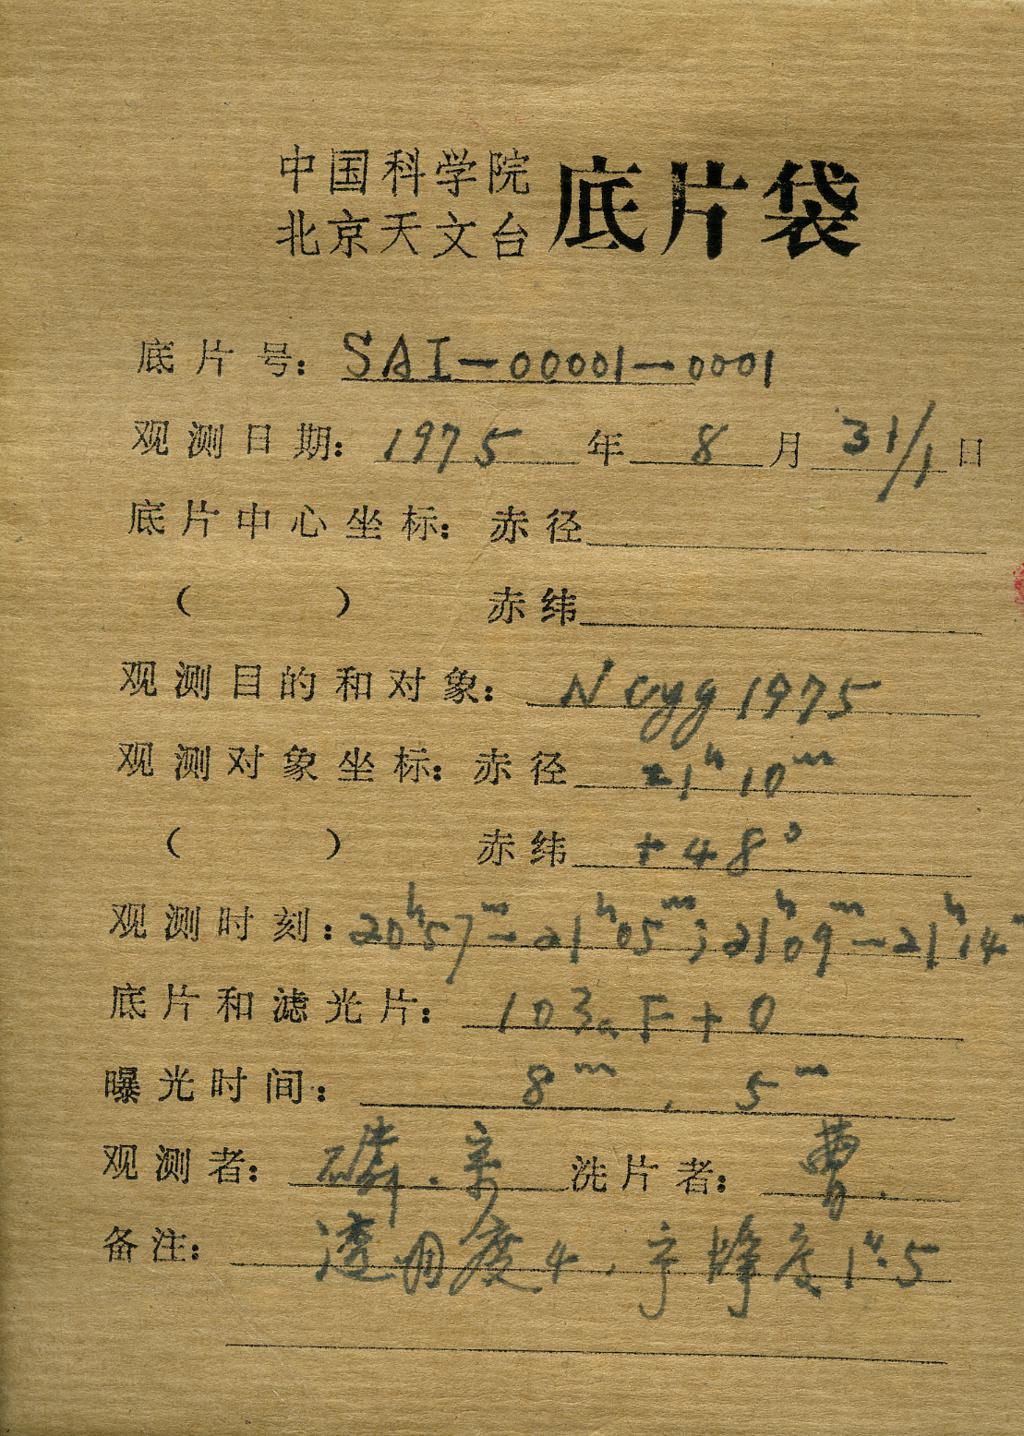 中国科学院
北京天文台
底片袋
底片号：SAI-00001-0001
观测日期：1975年8月31/1日
底片中心坐标：赤径
（ ） 赤纬
观测目的和对象：N cyg 1975
观测对象坐标：赤径 21ʰ10ᵐ
（ ） 赤纬 +48°
观测时刻：20ʰ57ᵐ-21ʰ05ᵐ；21ʰ09ᵐ-21ʰ14ᵐ
底片和滤光片：103aF+O
曝光时间：8ᵐ，5ᵐ
观测者： 洗片者：曹.
备注：透明度4，宁静度1″.5